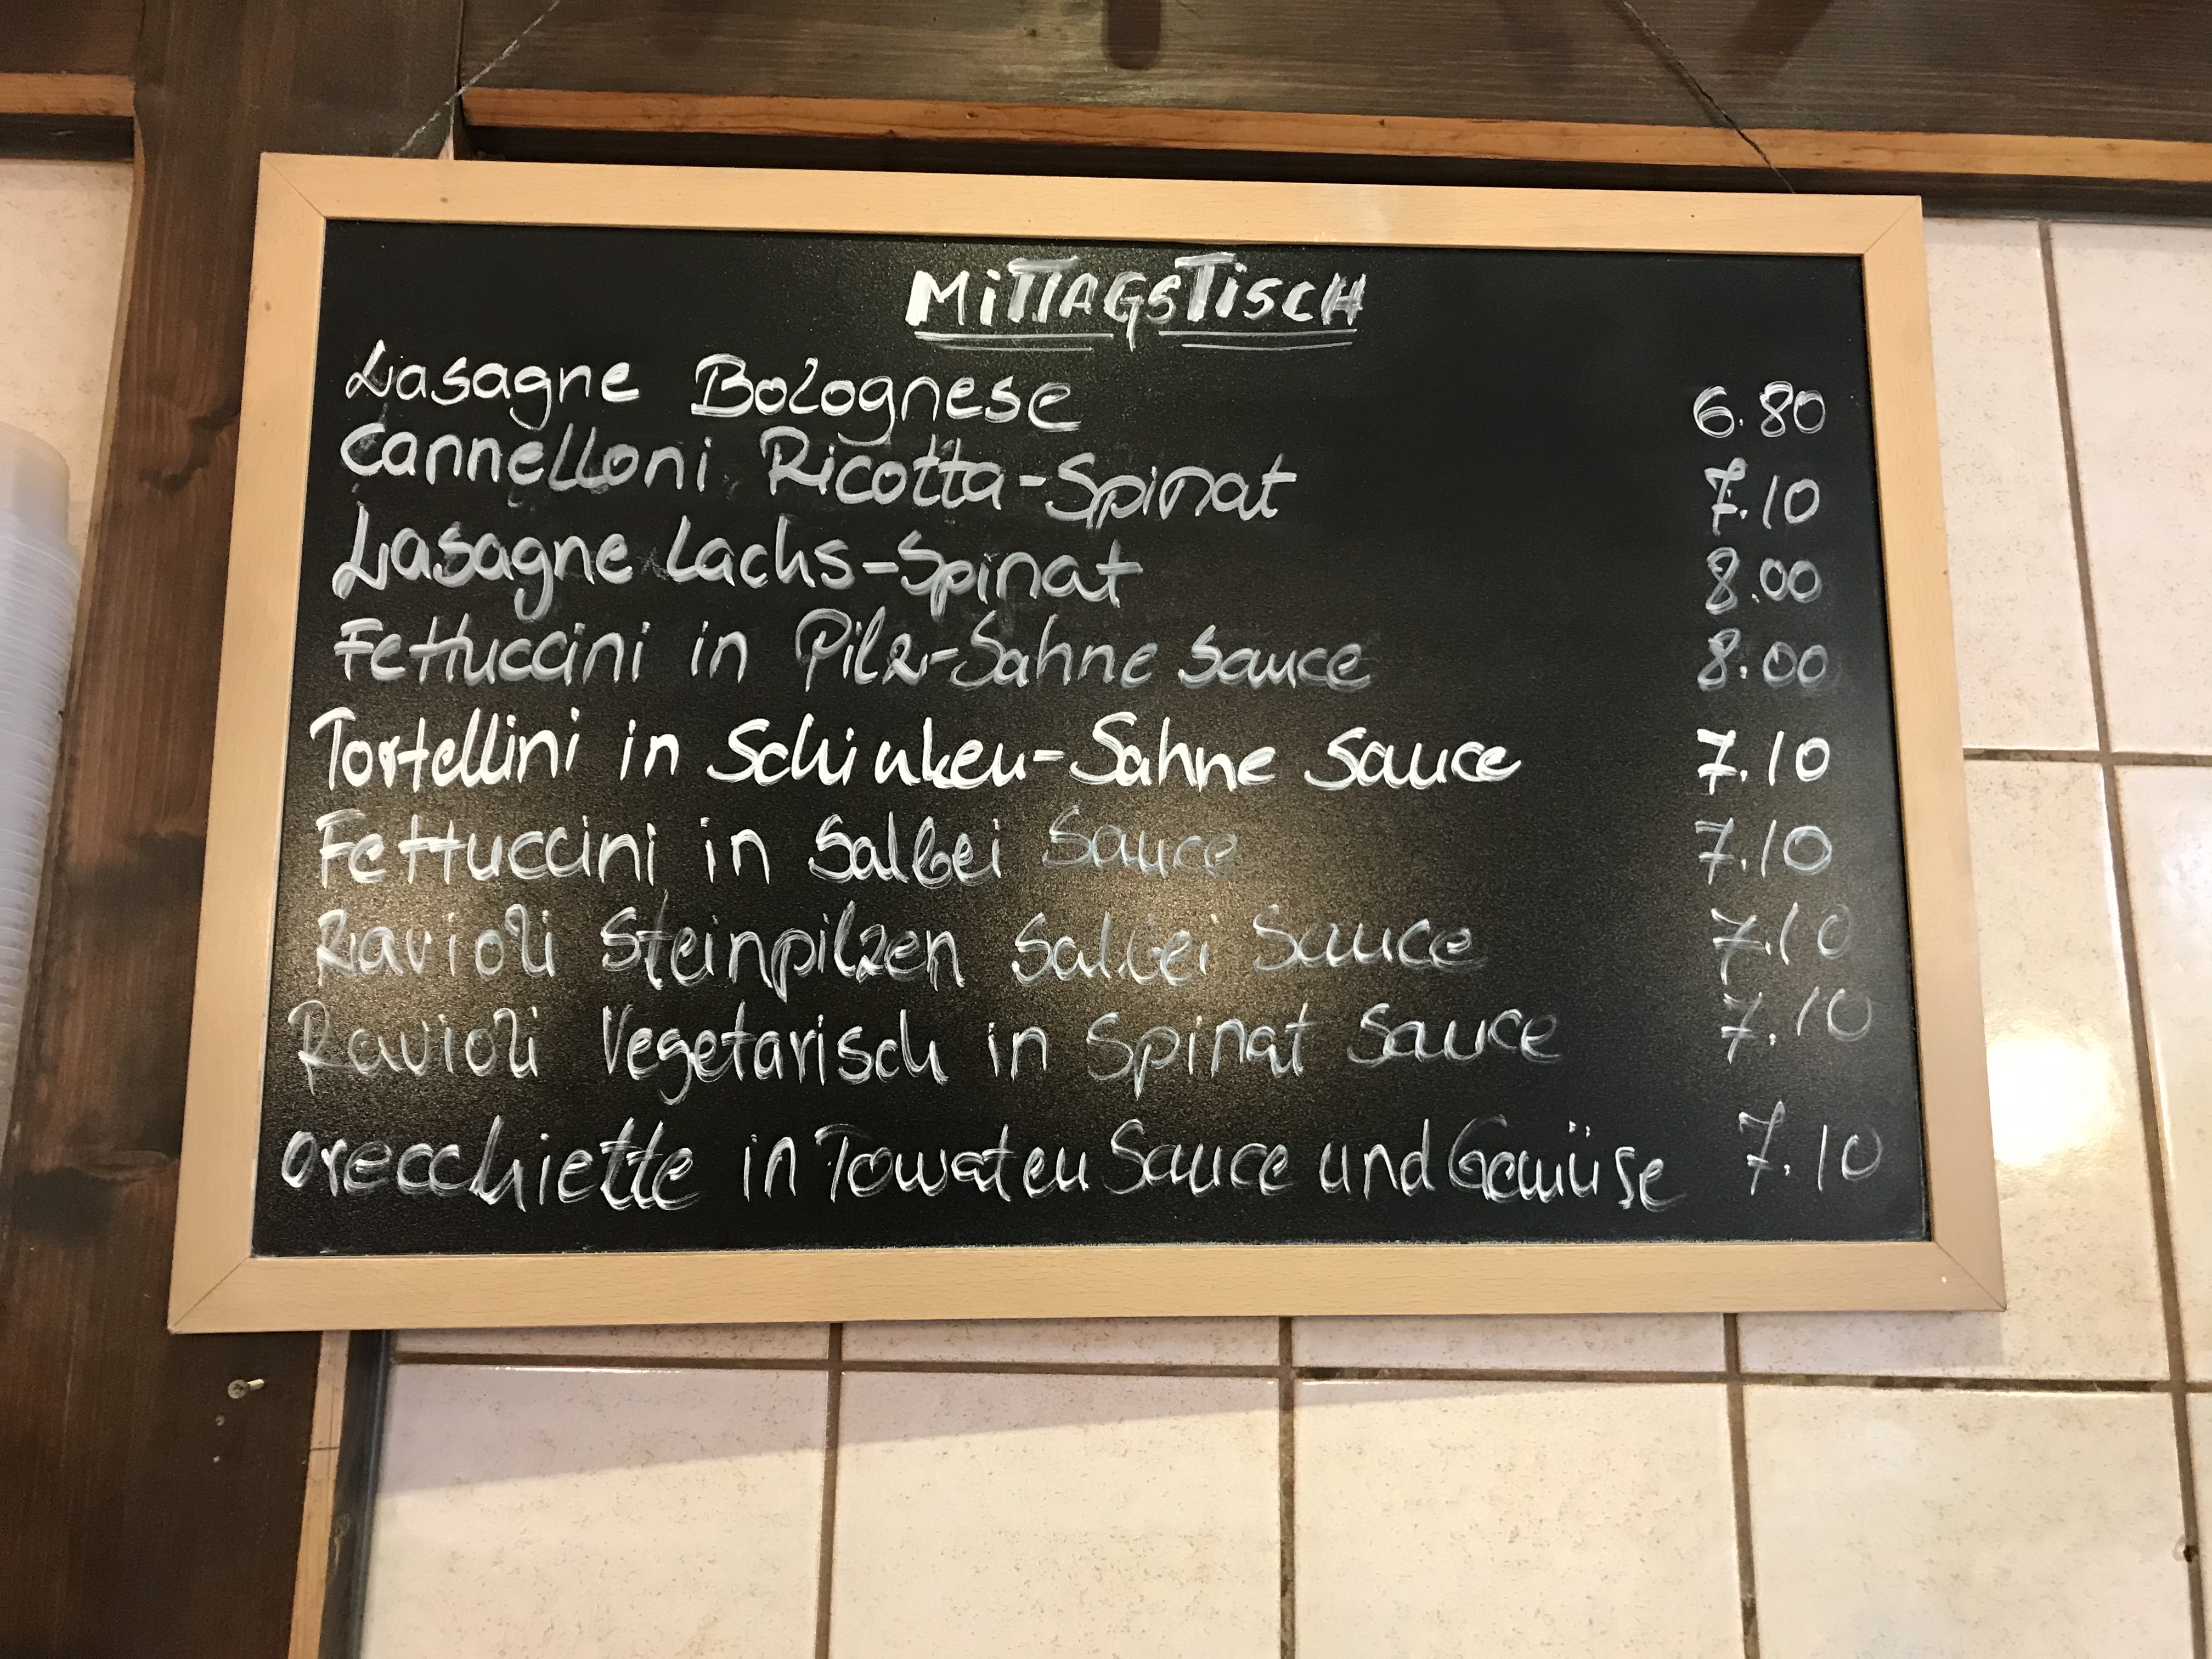 MiTTAGSTiSCH
Lasagne Bolognese 6.80
Cannelloni Ricotta-Spinat 7.10
Lasagne Lachs-Spinat 8.00
Fettuccini in Pilz-Sahne Sauce 8.00
Tortellini in Schinken-Sahne Sauce 7.10
Fettuccini in Salbei Sauce 7.10
Ravioli Steinpilzen Salbei Sauce 7.10
Ravioli Vegetarisch in Spinat Sauce 7.10
orecchiette in Tomaten Sauce und Gemüse 7.10